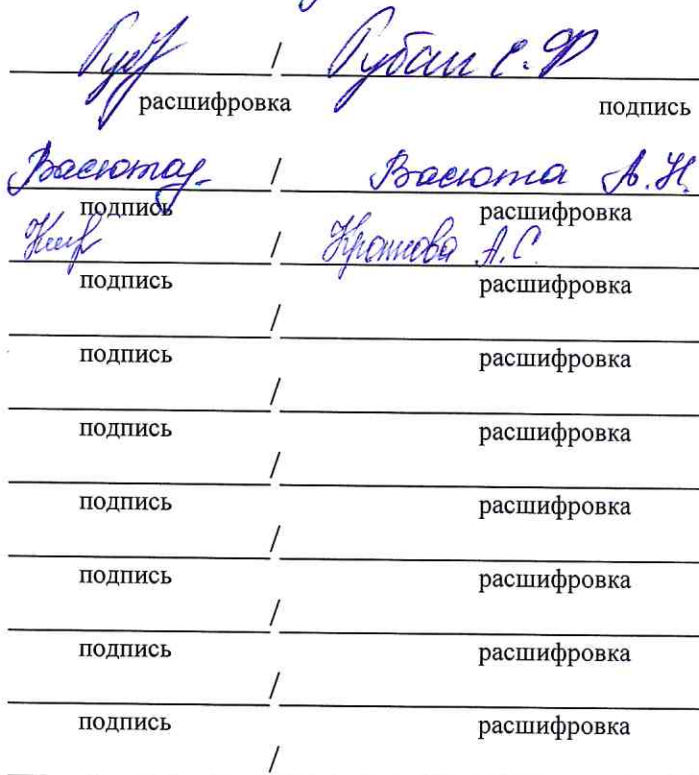 / Губан С.Ф
расшифровка подпись
Васюта / Васюта А.Н.
подпись расшифровка
/ Кроткова А.С.
подпись расшифровка
/
подпись расшифровка
/
подпись расшифровка
/
подпись расшифровка
/
подпись расшифровка
/
подпись расшифровка
/
подпись расшифровка
/